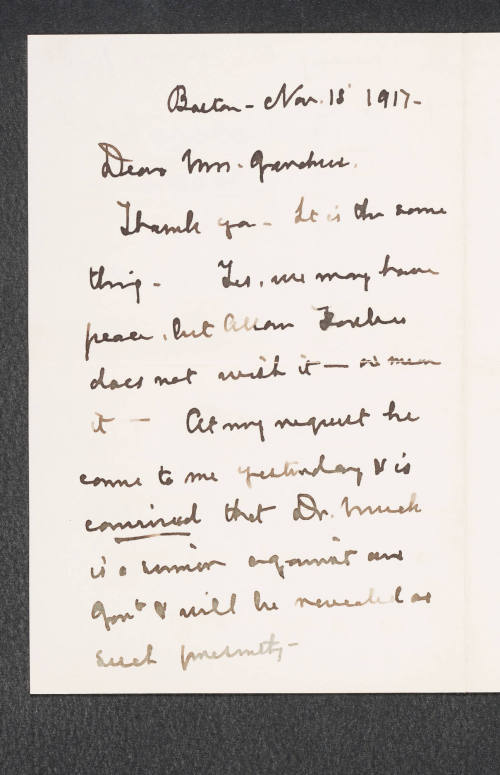 Boston - Nov. 18 1917 -
Dear Mrs. Gardner.
Thank you - It is the same
thing - Yes, we may have
peace, but Allan Forbes
does not wish it - or mean
it - At my request he
came to me yesterday & is
convinced that Dr. Muck
is a sinner against our
Govt & will be revealed as
such presently -